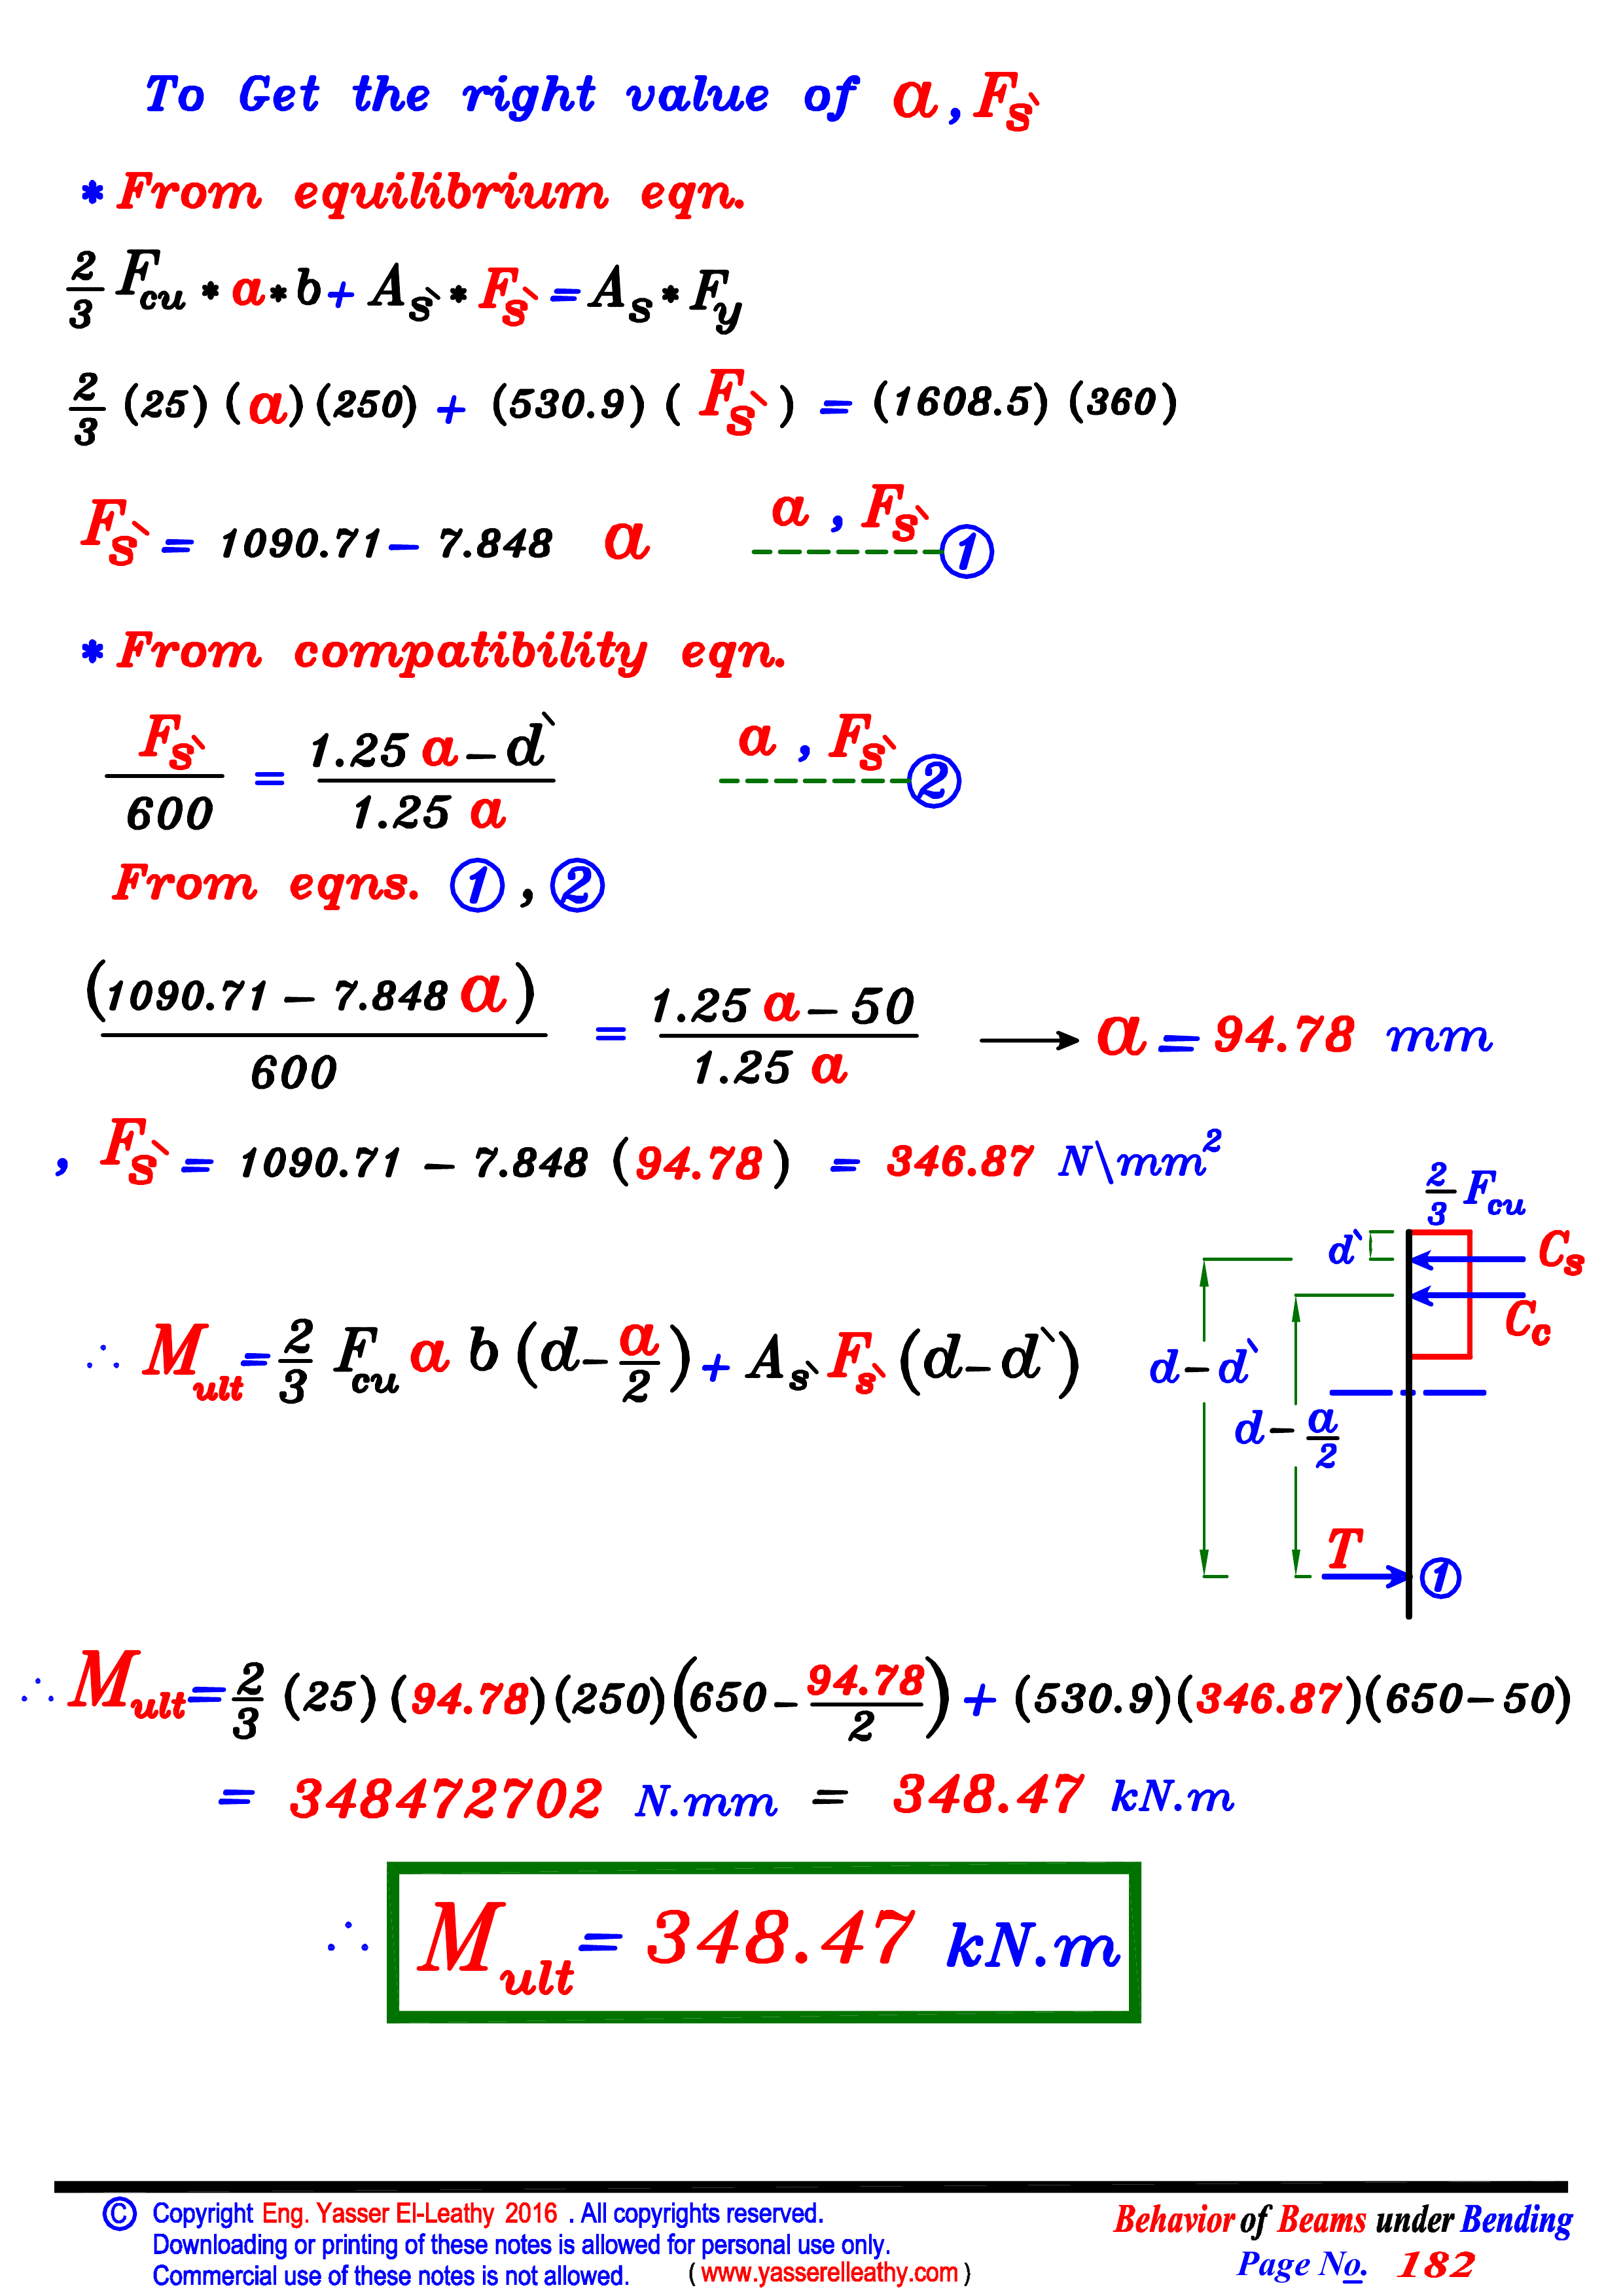 To Get the right value of a , Fs`
* From equilibrium eqn.
2/3 Fcu * a * b + As` * Fs` = As * Fy
2/3 (25) (a) (250) + (530.9) ( Fs` ) = (1608.5) (360)
Fs` = 1090.71 - 7.848 a a , Fs` ------- ①
* From compatibility eqn.
Fs`/600 = (1.25 a - d`)/(1.25 a) a , Fs` ------- ②
From eqns. ① , ②
(1090.71 - 7.848 a)/600 = (1.25 a - 50)/(1.25 a) → a = 94.78 mm
, Fs` = 1090.71 - 7.848 (94.78) = 346.87 N\mm²
2/3 Fcu
d` Cs
Cc
∴ Mult = 2/3 Fcu a b (d - a/2) + As` Fs` (d - d`)
d - d`
d - a/2
T ①
∴ Mult = 2/3 (25) (94.78) (250) (650 - 94.78/2) + (530.9)(346.87)(650 - 50)
= 348472702 N.mm = 348.47 kN.m
∴ Mult = 348.47 kN.m
© Copyright Eng. Yasser El-Leathy 2016 . All copyrights reserved.
Downloading or printing of these notes is allowed for personal use only.
Commercial use of these notes is not allowed. ( www.yasserelleathy.com )
Behavior of Beams under Bending
Page No. 182